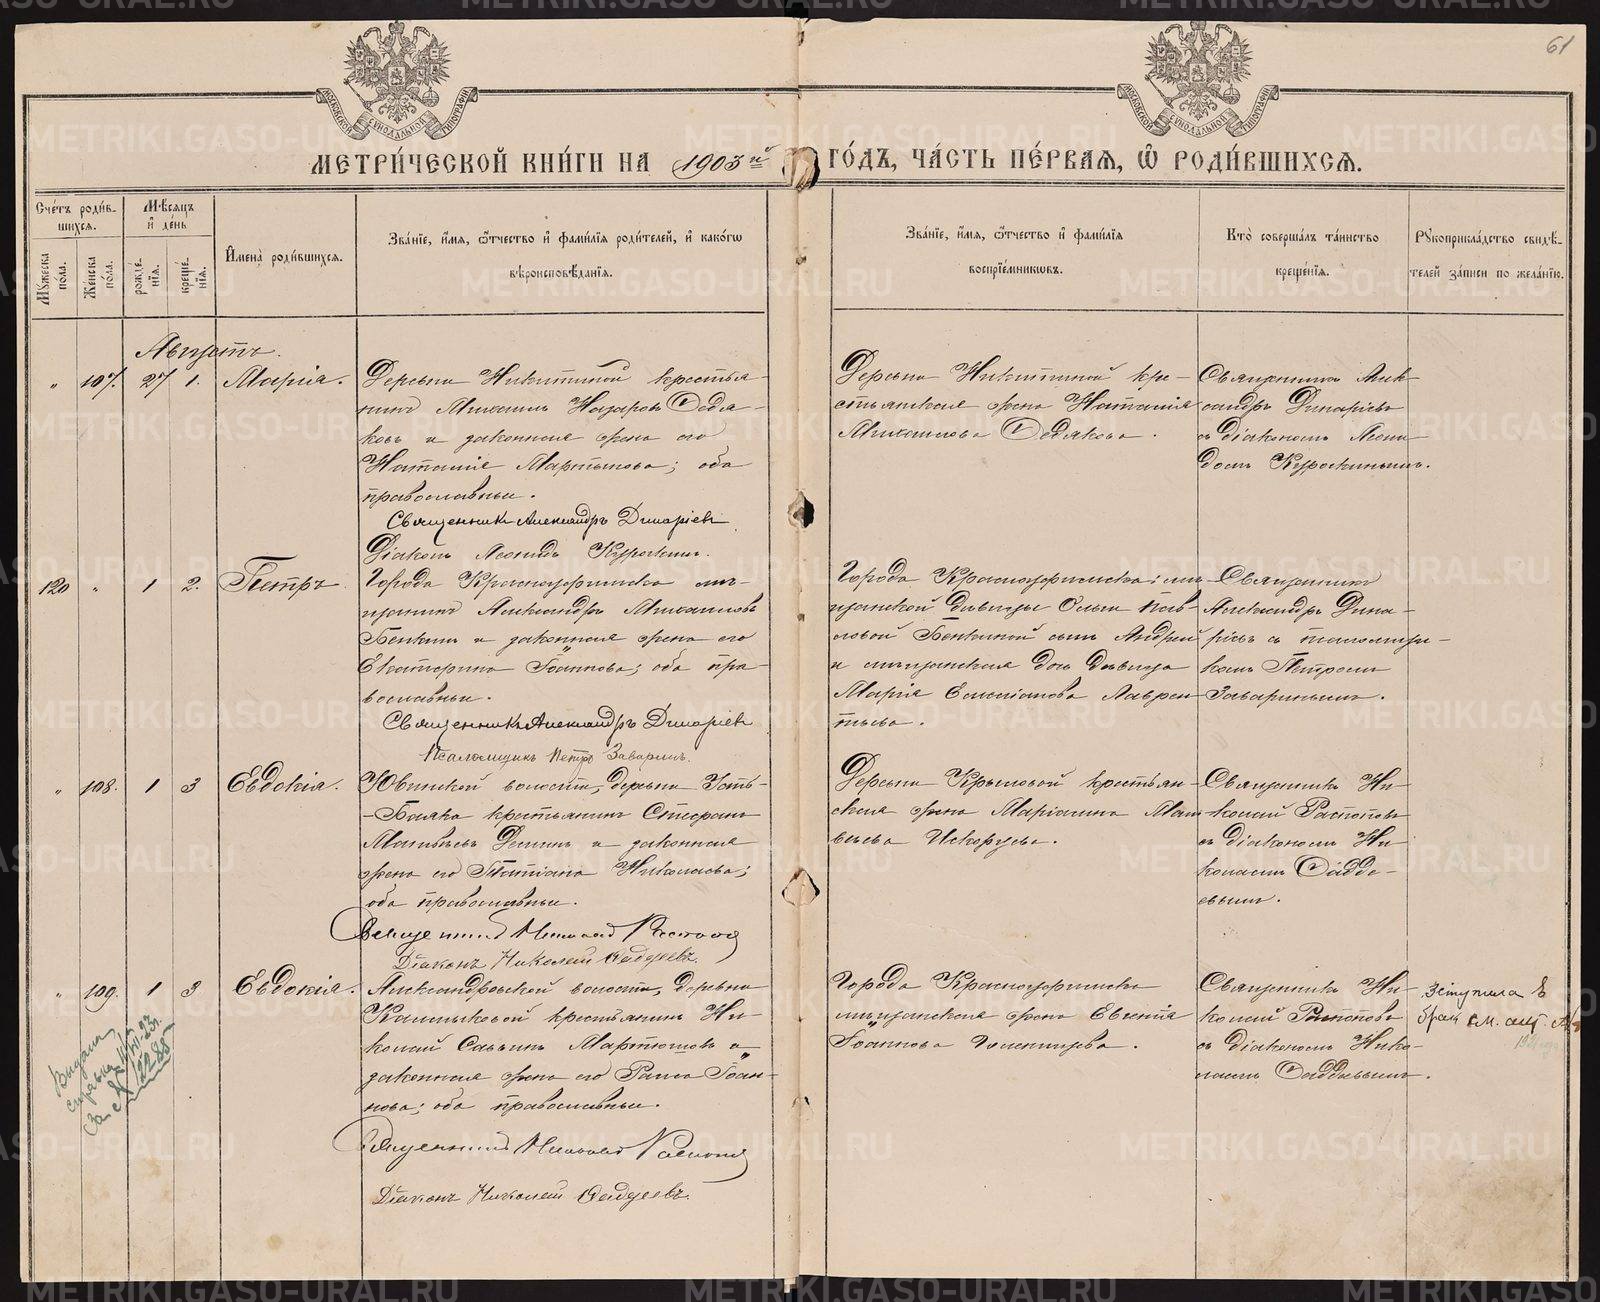 61
МОСКОВСКОЙ СУНОДАЛЬНОЙ ТИПОГРАФІИ
МОСКОВСКОЙ СУНОДАЛЬНОЙ ТИПОГРАФІИ
МЕТРИ́ЧЕСКОЙ КНИ́ГИ НА 1903й ГО́ДЪ, ЧА́СТЬ ПЕ́РВАѦ, Ѡ҆ РОДИ́ВШИХСѦ.
Сче́тъ роди́вшихсѧ.
Мꙋ́жеска по́ла.
Же́нска по́ла.
Мѣ́сѧцъ и҆ де́нь
рожде́нїѧ.
креще́нїѧ.
И҆мена̀ роди́вшихсѧ.
Зва́нїе, и҆́мѧ, ѻ҆́тчество и҆ фами́лїѧ роди́телей, и҆ како́гѡ
вѣроисповѣ́данїѧ.
Зва́нїе, и҆́мѧ, ѻ҆́тчество и҆ фами́лїѧ
воспрїе́мникѡвъ.
Кто̀ соверша́лъ та́инство
креще́нїѧ.
Рꙋкоприкла́дство свидѣ́-
телей за́писи по жела́нїю.
Августъ.
" 107. 27 1. Марія.
Деревни Никитиной крестья-
нинъ Михаилъ Назаровъ Ѳедя-
ковъ и законная жена его
Наталія Мартынова; оба
православные.
Священникъ Александръ Динаріевъ
Діаконъ Леонидъ Курочкинъ.
Деревни Никитиной кре-
стьянская жена Наталія
Михаилова Ѳедякова.
Священникъ Алек-
сандръ Динаріевъ
съ діакономъ Леони-
домъ Курочкинымъ.
120 " 1 2. Петръ
Города Красноуфимска мѣ-
щанинъ Александръ Михаиловъ
Бѣлкинъ и законная жена его
Екатерина Іоаннова; оба пра-
вославные.
Священникъ Александръ Динаріевъ
Псаломщикъ Петръ Заваринъ.
Города Красноуфимска: мѣ-
щанской дѣвицы Ольги Пав-
ловой сынъ Андрей
и мѣщанская дочь дѣвица
Марія Емеліанова Лаврен-
тьева.
Священникъ
Александръ Дина-
ріевъ съ псаломщи-
комъ Петромъ
Заваринымъ.
" 108. 1 3 Евдокія.
Ювинской волости, деревни Усть-
-Баяка крестьянинъ Стефанъ
Матвѣевъ и законная
жена его Татіана Николаева;
оба православные.
Священникъ Николай Распоповъ
Діаконъ Николай Ѳаддеевъ.
Деревни Крыловой крестьян-
ская жена Маріамна Мат-
вѣева
Священникъ Ни-
колай Распоповъ
съ діакономъ Ни-
колаемъ Ѳадде-
евымъ.
" 109. 1 3 Евдокія.
Александровской волости, деревни
Калмыковой крестьянинъ Ни-
колай Саввинъ Мартюшовъ и
законная жена его Раиса Іоан-
нова; оба православные.
Священникъ Николай Распоповъ
Діаконъ Николай Ѳаддеевъ.
Города Красноуфимска
мѣщанская жена Евгенія
Іоаннова Голенищева.
Священникъ Ни-
колай Распоповъ
съ діакономъ Нико-
лаемъ Ѳаддеевымъ.
Вступила в
брак см. акт
Выдана
справка
за № 12288
METRIKI.GASO-URAL.RU